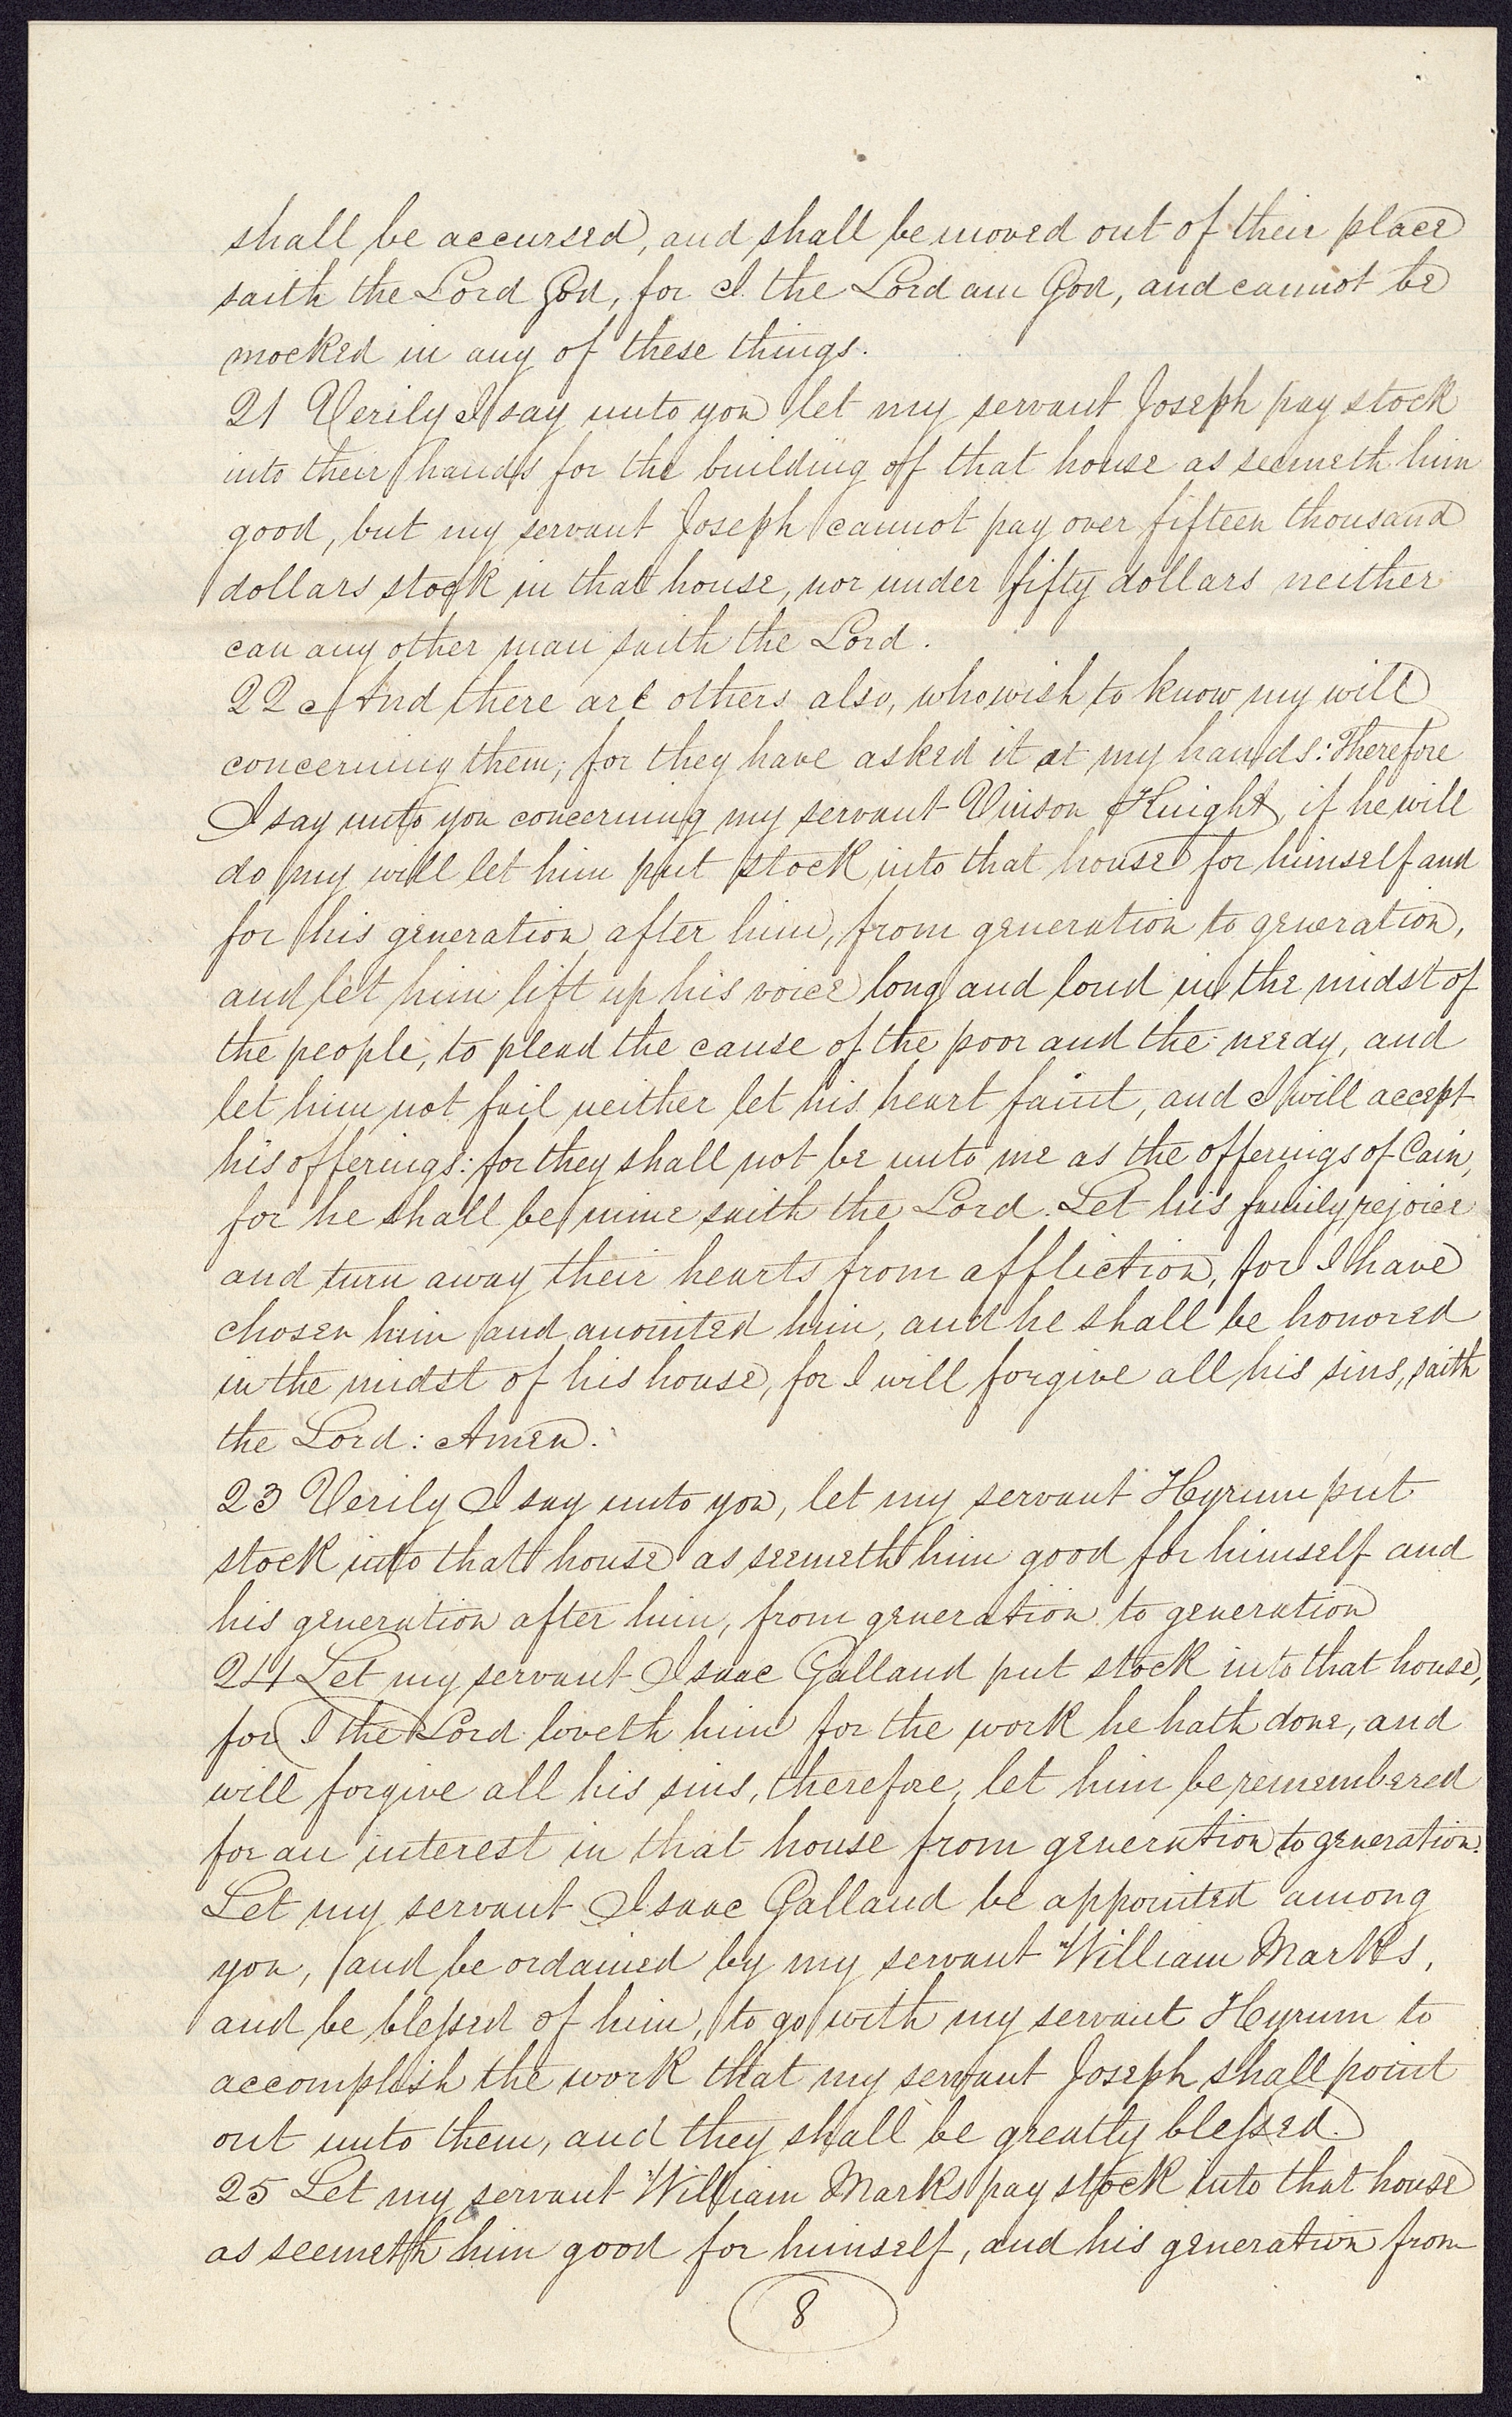 shall be accursed, and shall be moved out of their place
saith the Lord God, for I the Lord am God, and cannot be
mocked in any of these things.
21 Verily I say unto you let my servant Joseph pay stock
into their hands for the building of that house as seemeth him
good, but my servant Joseph cannot pay over fifteen thousand
dollars stock in that house, nor under fifty dollars neither
can any other man saith the Lord.
22 And there are others also, who wish to know my will
concerning them; for they have asked it at my hands: Therefore
I say unto you concerning my servant Vinson Knight, if he will
do my will let him put stock into that house for himself and
for his generation after him, from generation to generation,
and let him lift up his voice long and loud in the midst of
the people, to plead the cause of the poor and the needy, and
let him not fail neither let his heart faint, and I will accept
his offerings: for they shall not be unto me as the offerings of Cain,
for he shall be mine saith the Lord. Let his family rejoice
and turn away their hearts from affliction, for I have
chosen him and anointed him, and he shall be honored
in the midst of his house, for I will forgive all his sins, saith
the Lord: Amen.
23 Verily I say unto you, let my servant Hyrum put
stock into that house as seemeth him good for himself and
his generation after him, from generation to generation
24 Let my servant Isaac Galland put stock into that house,
for I the Lord loveth him for the work he hath done, and
will forgive all his sins, therefore, let him be remembered
for an interest in that house from generation to generation.
Let my servant Isaac Galland be appointed among
you, and be ordained by my servant William Marks,
and be blessed of him, to go with my servant Hyrum to
accomplish the work that my servant Joseph shall point
out unto them, and they shall be greatly blessed.
25 Let my servant William Marks pay stock into that house
as seemeth him good for himself, and his generation from
8